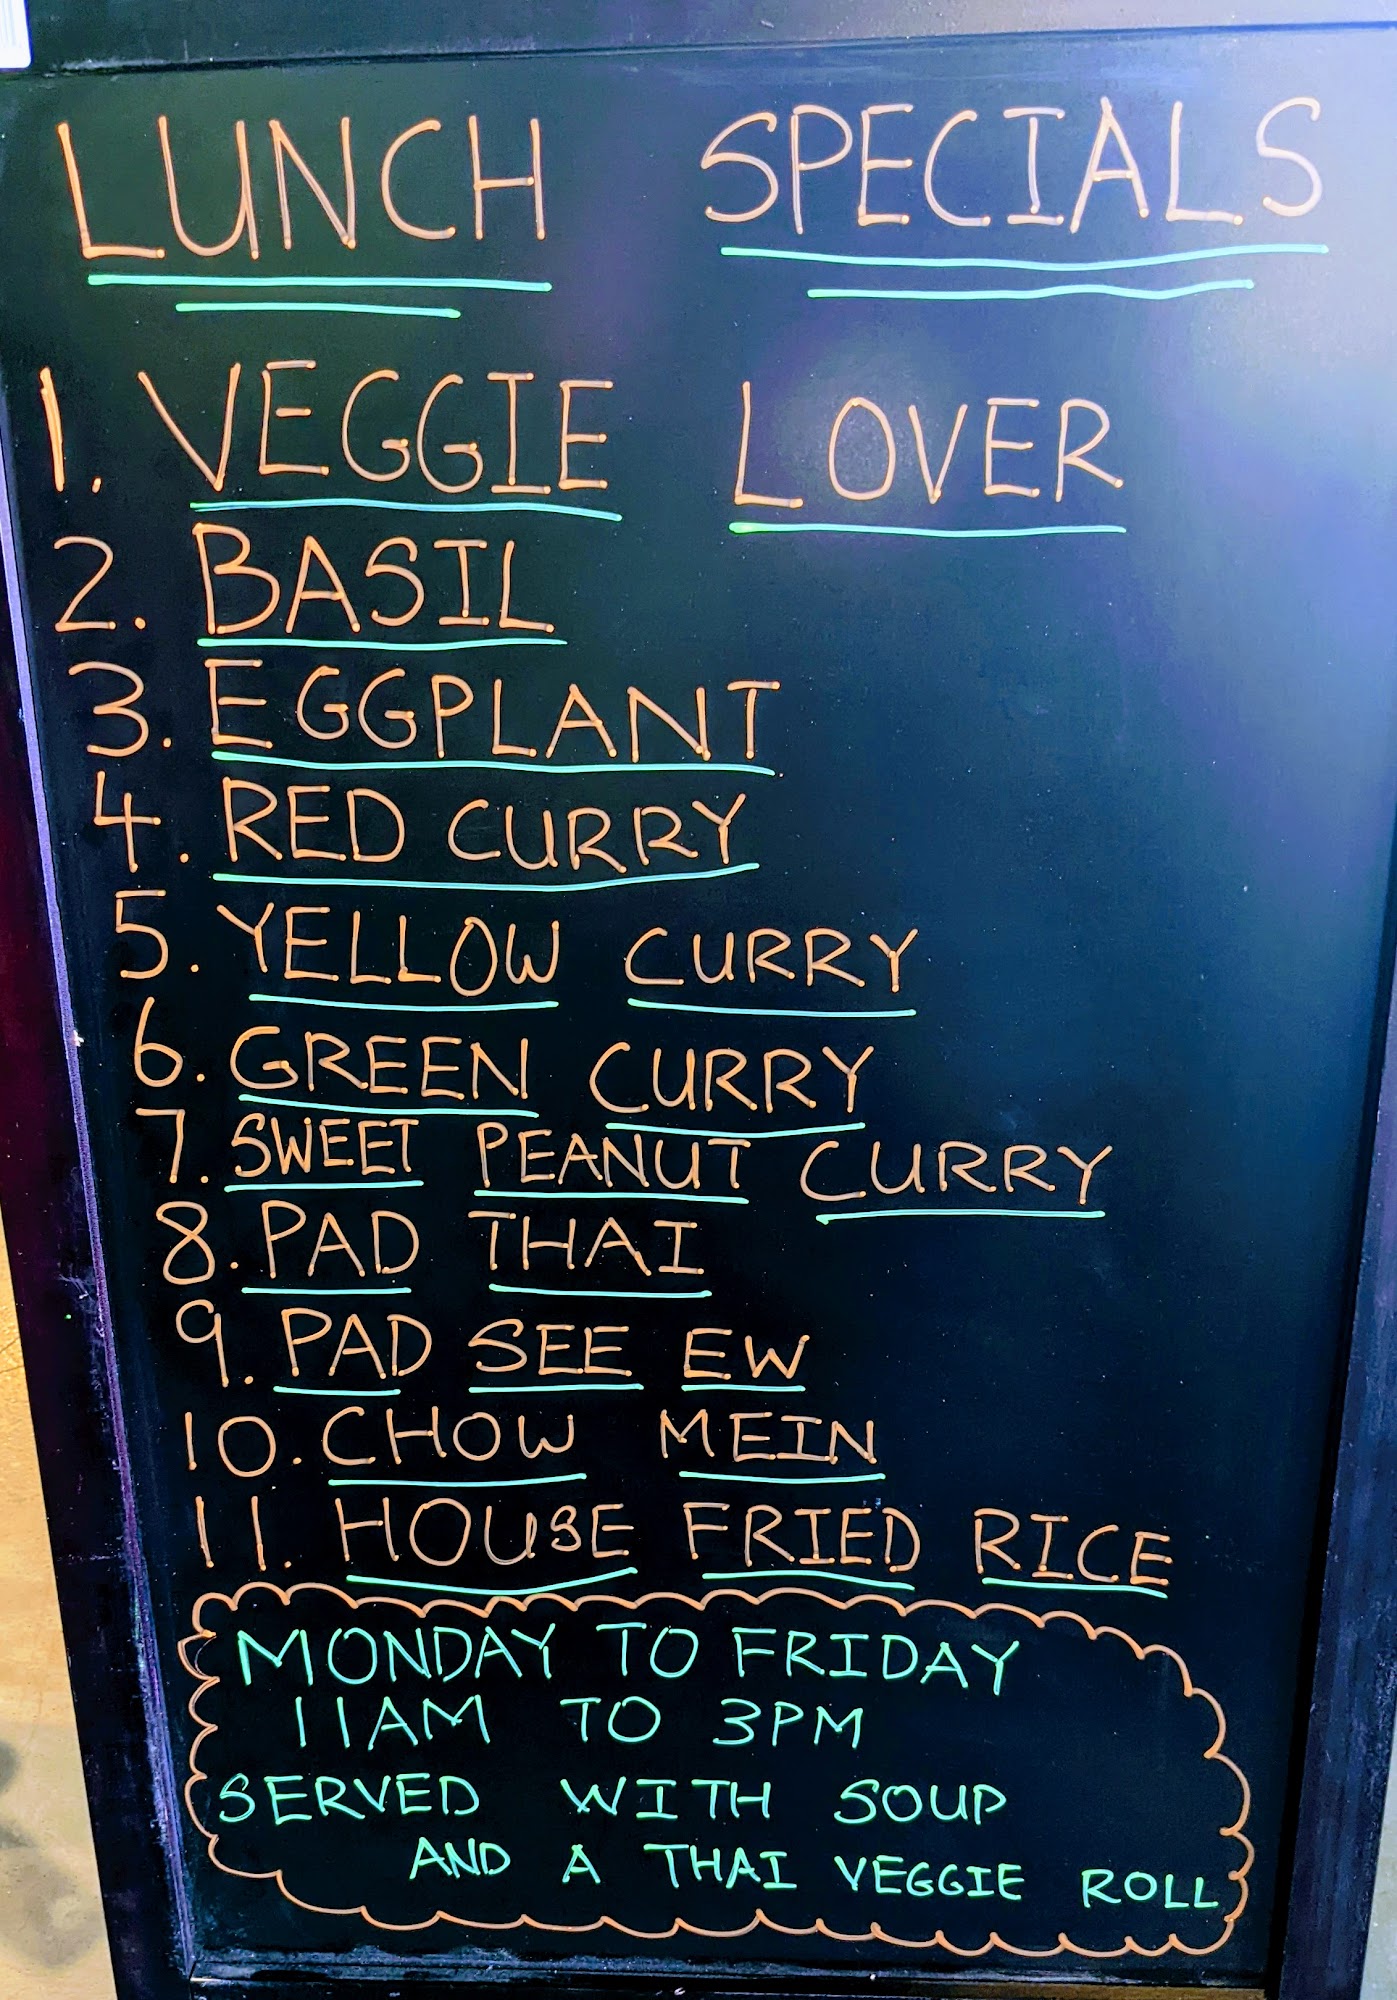 LUNCH SPECIALS
1. VEGGIE LOVER
2. BASIL
3. EGGPLANT
4. RED CURRY
5. YELLOW CURRY
6. GREEN CURRY
7. SWEET PEANUT CURRY
8. PAD THAI
9. PAD SEE EW
10. CHOW MEIN
11. HOUSE FRIED RICE
MONDAY TO FRIDAY
11AM TO 3PM
SERVED WITH SOUP
AND A THAI VEGGIE ROLL